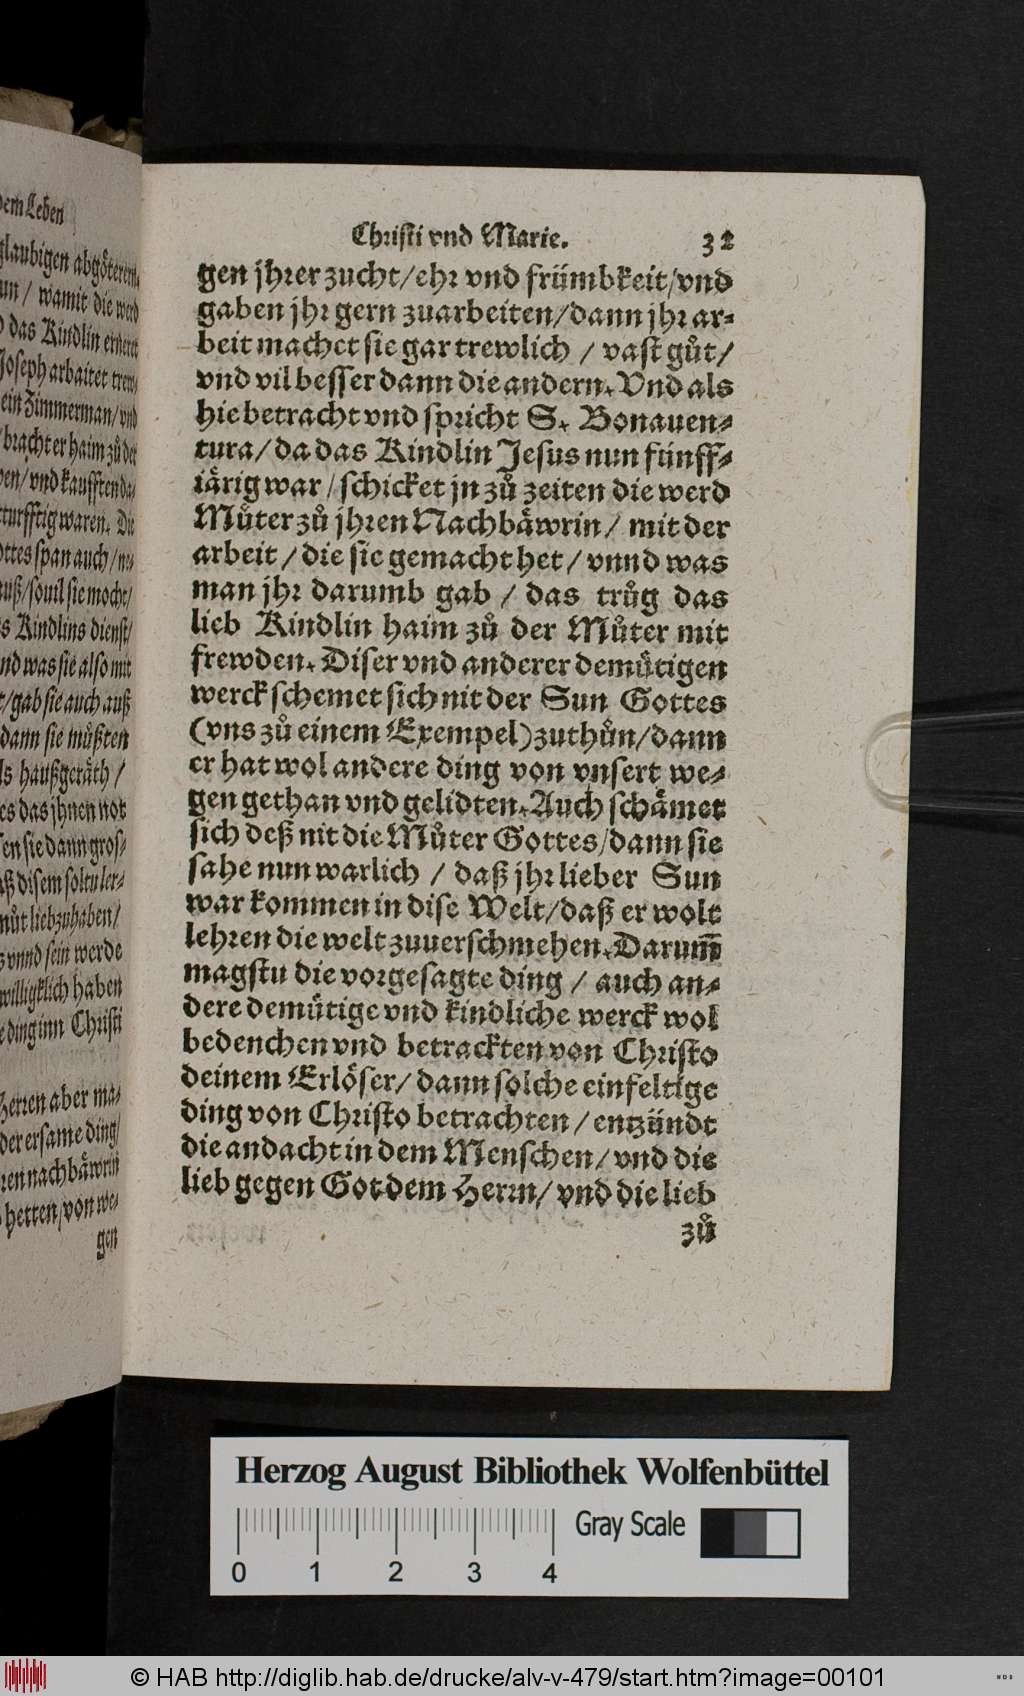 dem Leben
glaubigen abgötteren
un / wamit die werd
das Kindlin erneret
Joseph arbaitet trew⸗
ein Zimmerman / vnd
bracht er haim zů der
ben / vnd kaufften da⸗
turfftig waren. Die
ottes span auch / ne⸗
auß / souil sie mocht /
s Kindlins dienst /
nd was sie also mit
t / gab sie auch auß
dann sie můßten
ls haußgeräth /
es das jhnen not
sen sie dann gros⸗
aß disem soltu ler⸗
můt liebzuhaben /
vnnd sein werde
williglich haben
e ding inn Christi
Herren aber ma⸗
der ersame ding /
ren nachbäwrin
hetten / von we⸗
gen
Christi vnd Marie. 32
gen jhrer zucht / ehr vnd frümbkeit / vnd
gaben jhr gern zuarbeiten / dann jhr ar⸗
beit machet sie gar trewlich / vast gůt /
vnd vil besser dann die andern. Vnd als
hie betracht vnd spricht S. Bonauen⸗
tura / da das Kindlin Jesus nun fünff⸗
iärig war / schicket jn zů zeiten die werd
Můter zů jhren Nachbäwrin / mit der
arbeit / die sie gemacht het / vnnd was
man jhr darumb gab / das trůg das
lieb Kindlin haim zů der Můter mit
frewden. Diser vnd anderer demütigen
werck schemet sich nit der Sun Gottes
(vns zů einem Exempel) zuthůn / dann
er hat wol andere ding von vnsert we⸗
gen gethan vnd gelidten. Auch schämet
sich deß nit die Můter Gottes / dann sie
sahe nun warlich / daß jhr lieber Sun
war kommen in dise Welt / daß er wolt
lehren die welt zuuerschmehen. Darum̄
magstu die vorgesagte ding / auch an⸗
dere demütige vnd kindliche werck wol
bedenchen vnd betrackten von Christo
deinem Erlöser / dann solche einfeltige
ding von Christo betrachten / entzündt
die andacht in dem Menschen / vnd die
lieb gegen Got dem Herrn / vnd die lieb
zů
Herzog August Bibliothek Wolfenbüttel
Gray Scale
0 1 2 3 4
© HAB http://diglib.hab.de/drucke/alv-v-479/start.htm?image=00101